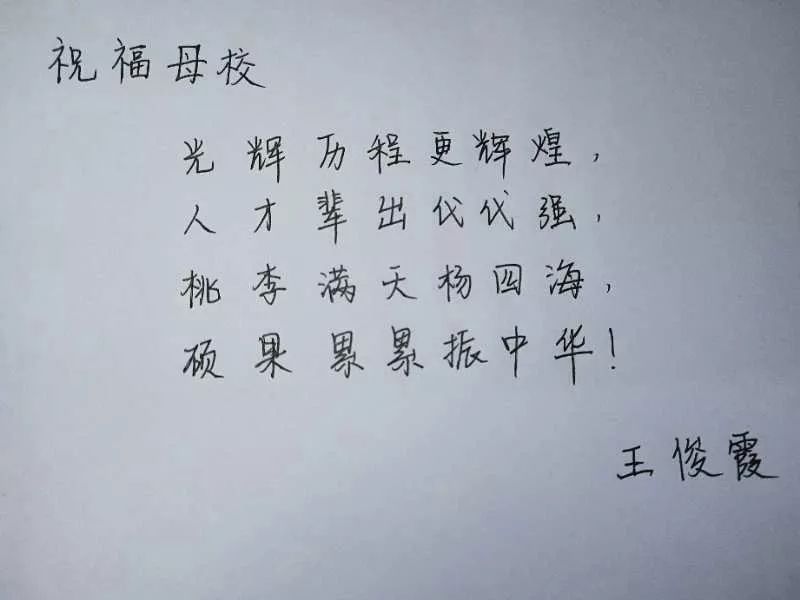 祝福母校
光辉历程更辉煌,
人才辈出代代强,
桃李满天杨四海,
硕果累累振中华!
王俊霞